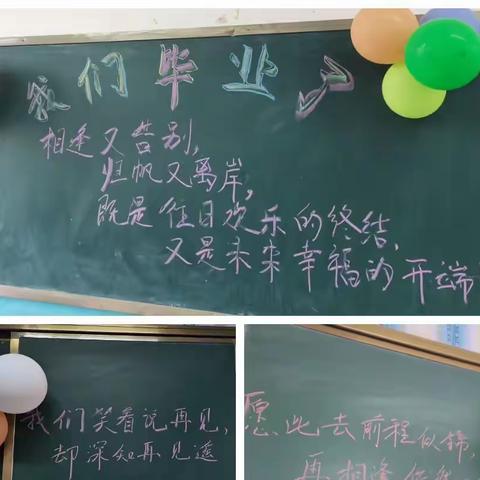 我们毕业了
相逢又告别,
归帆又离岸,
既是往日欢乐的终结,
又是未来幸福的开端
我们笑着说再见,
却深知再见遥
愿此去前程似锦,
再相逢依然